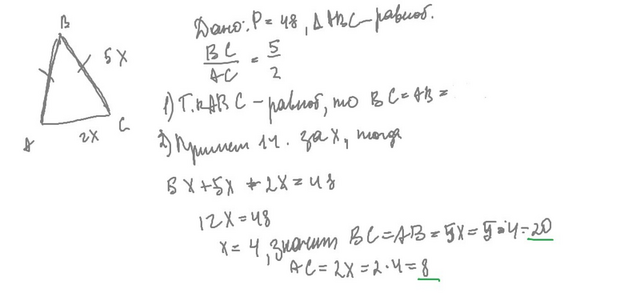 B
5x
A
2x
C
Дано: P = 48, △ABC - равноб.
BC/AC = 5/2
1) Т.к ABC - равноб, то BC = AB =
2) Примем 1ч. за x, тогда
5x + 5x + 2x = 48
12x = 48
x = 4, значит BC = AB = 5x = 5·4 = 20
AC = 2x = 2·4 = 8